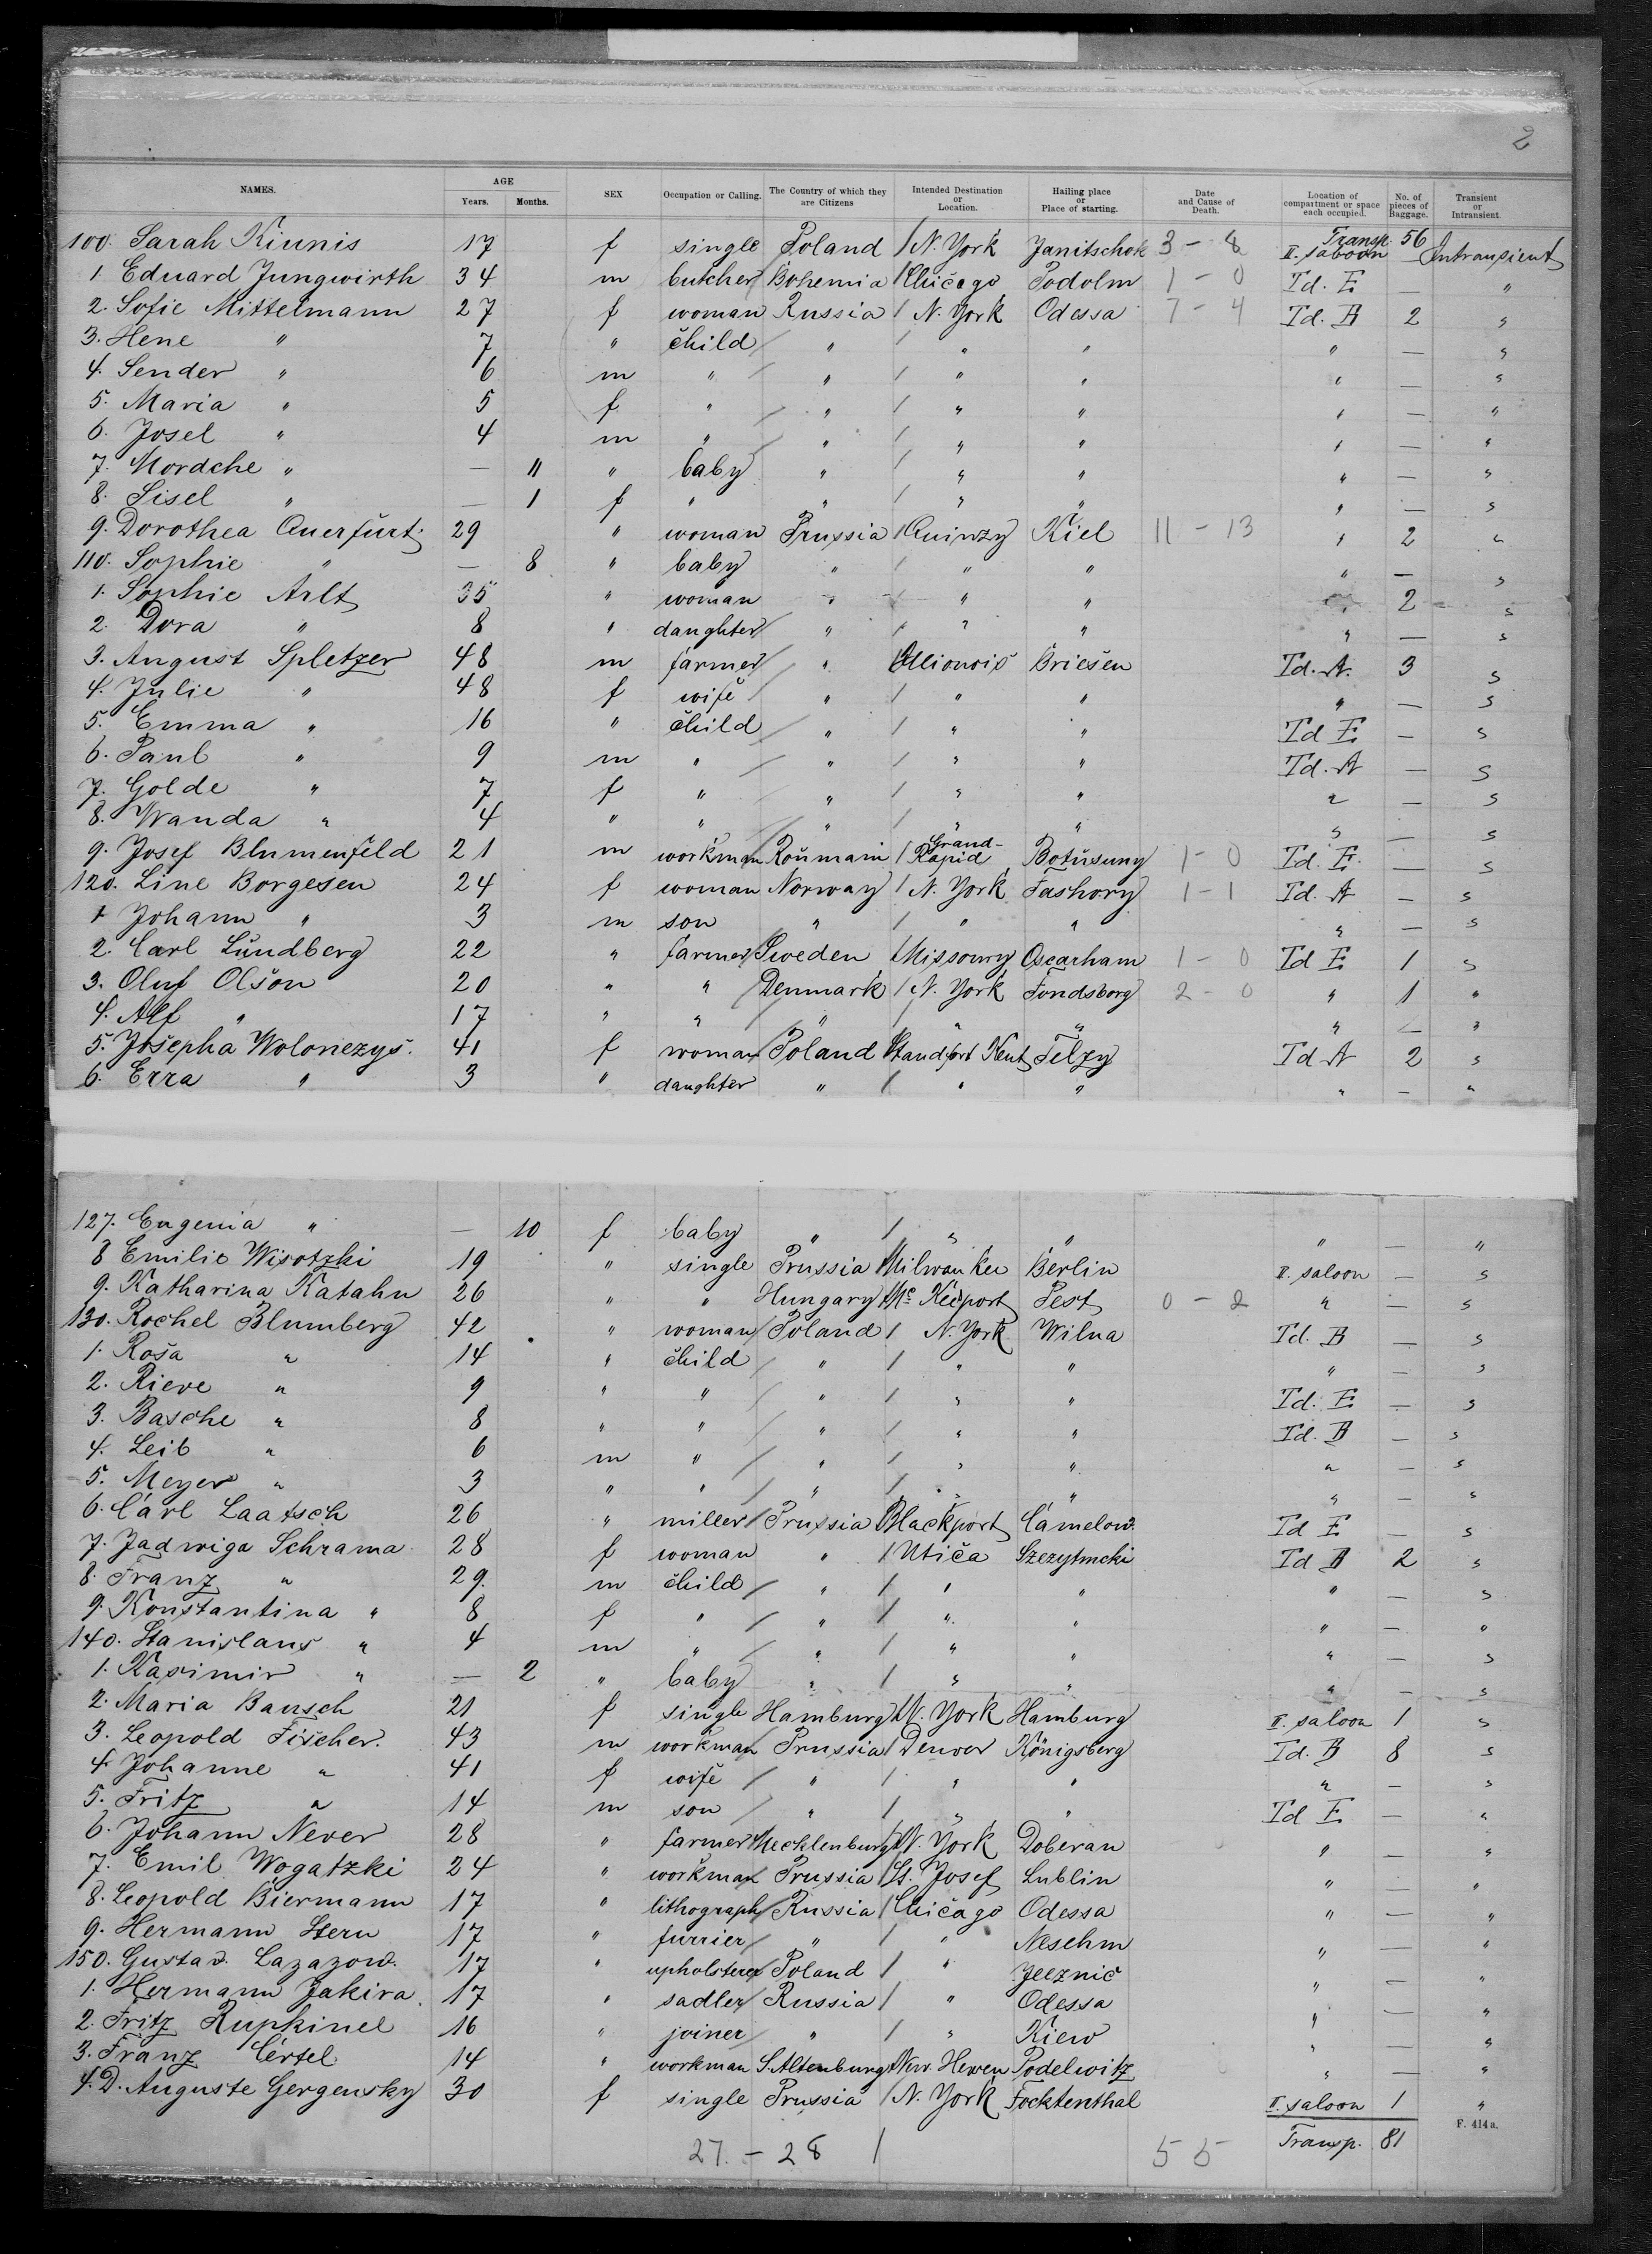 2
NAMES. AGE Years. Months. SEX Occupation or Calling. The Country of which they are Citizens Intended Destination or Location. Hailing place or Place of starting. Date and Cause of Death. Location of compartment or space each occupied. No. of pieces of Baggage. Transient or Intransient.
Transp. 56
100. Sarah Kiunis 17 f single Poland / N. York Janitschok 3 - 8 II. saloon — Intransient
1. Eduard Jungwirth 34 m butcher Bohemia / Chicago Podolm 1 - 0 Td. E — "
2. Sofie Mittelmann 27 f woman Russia / N. York Odessa 7 - 4 Td. B 2 "
3. Hene " 7 " child / " / " " " — "
4. Sender " 6 m " / " / " " " — "
5. Maria " 5 f " / " / " " " — "
6. Josel " 4 m " / " / " " " — "
7. Mordche " — 11 " baby " / " " " — "
8. Sisel " — 1 f " " / " " " — "
9. Dorothea Querfurt. 29 " woman Prussia / Quinzy Kiel 11 - 13 " 2 "
110. Sophie " — 8 " baby " / " " " — "
1. Sophie Arlt 35 " woman " / " " " 2 "
2. Dora " 8 " daughter " / " " " — "
3. August Spletzer 48 m farmer / " / Illionois Briesen Td. A. 3 "
4. Julie " 48 f wife / " / " " " — "
5. Emma " 16 " child / " / " " Td E — "
6. Paul " 9 m " / " / " " Td. A — "
7. Golde " 7 f " / " / " " " — "
8. Wanda " 4 " " / " / " " " — "
9. Josef Blumenfeld 21 m workman Roumain / Grand-Rapid Botusuny 1 - 0 Td. E. — "
120. Line Borgesen 24 f woman Norway / N. York Fashory 1 - 1 Td. A — "
1. Johann " 3 m son " / " " " — "
2. Carl Lundberg 22 " farmer / Sweden / Missoury Oscarham 1 - 0 Td E 1 "
3. Oluf Olson 20 " " / Denmark / N. York Fondsborg 2 - 0 " 1 "
4. Alf " 17 " " / " / " " " — "
5. Josepha Wolonezys. 41 f woman / Poland / Standfort Kent Telzy Td A 2 "
6. Erra " 3 " daughter " / " " " — "
127. Eugenia " — 10 f baby " / " " " — "
8 Emilie Wisotzki 19 " single Prussia / Milwaukee Berlin II. saloon — "
9. Katharina Katahn 26 " " Hungary / Mc Keesport Pest 0 - 2 " — "
130. Rochel Blumberg 42 " woman / Poland / N. York Wilna Td. B — "
1. Rosa " 14 " child / " / " " " — "
2. Rieve " 9 " " / " / " " Td. E — "
3. Basche " 8 " " / " / " " Td. B — "
4. Leib " 6 m " / " / " " " — "
5. Meyer " 3 " " / " / " " " — "
6. Carl Laatsch 26 " miller / Prussia / Blackport Camelow. Td E — "
7. Jadwiga Schrama 28 f woman " / Utica Szezytmcki Td B 2 "
8. Franz " 29. m child / " / " " " — "
9. Konstantina " 8 f " / " / " " " — "
140. Stanislaus " 4 m " / " / " " " — "
1. Kasimir " — 2 " baby " / " " " — "
2. Maria Bansch 21 f single Hamburg / N. York Hamburg II. saloon 1 "
3. Leopold Fischer. 43 m workman Prussia / Denver Königsberg Td. B 8 "
4. Johanne " 41 f wife / " / " " " — "
5. Fritz " 14 m son / " / " " Td E — "
6. Johann Never 28 " farmer Mecklenburg / N. York Doberan " — "
7. Emil Wogatzki 24 " workman Prussia / St. Josef Lublin " — "
8. Leopold Biermann 17 " lithograph / Russia / Chicago Odessa " — "
9. Hermann Stern 17 " furrier / " / " Nesehm " — "
150. Gustav. Lazazow. 17 " upholsterer Poland / " Jeeznic " — "
1. Hermann Jakira 17 " sadler / Russia / " Odessa " — "
2. Fritz Rupkinel 16 " joiner / " / " Kiew " — "
3. Franz Certel 14 " workman S. Altenburg / New. Hewen Podelwitz " — "
4. D. Auguste Gergensky 30 f single Prussia / N. York Focktenthal II. saloon 1 "
F. 414a.
27. - 28 / 55 Transp. 81